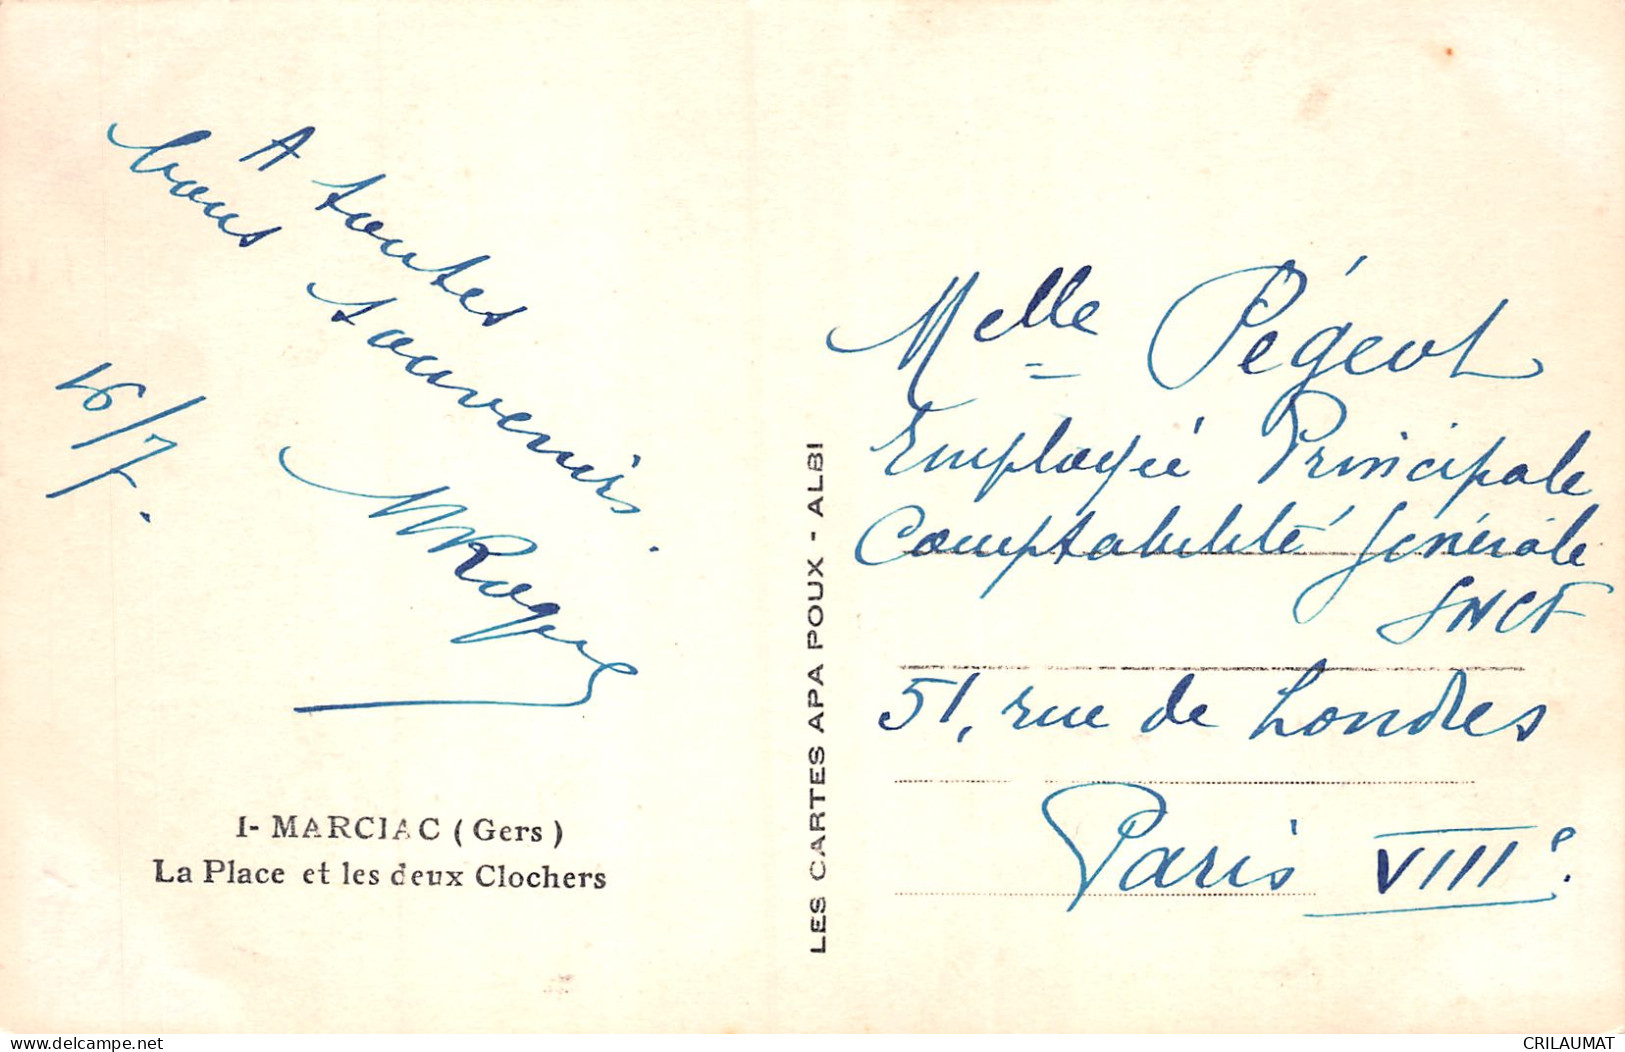 A toutes
bons souvenirs.
16/7.
MRoque
I- MARCIAC (Gers)
La Place et les deux Clochers
LES CARTES APA POUX - ALBI
Melle Pégeot
Employée Principale
Comptabilité Générale
SNCF
51, rue de Londres
Paris VIIIe.
www.delcampe.net
CRILAUMAT